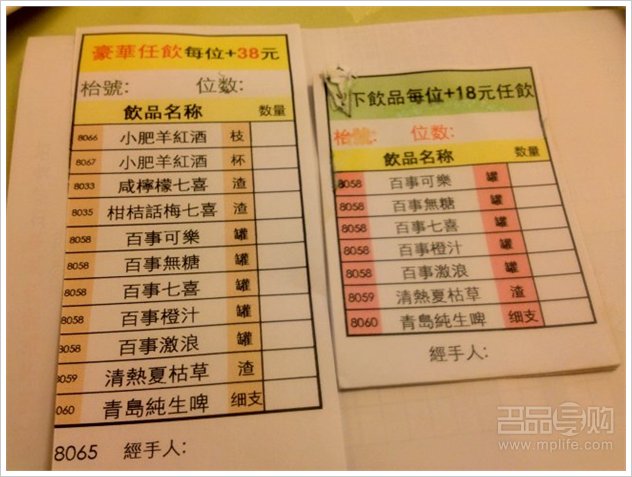 豪華任飲每位+38元
枱號: 位数:
飲品名称 数量
8066 小肥羊紅酒 枝
8067 小肥羊紅酒 杯
8033 咸檸檬七喜 渣
8035 柑桔話梅七喜 渣
8058 百事可樂 罐
8058 百事無糖 罐
8058 百事七喜 罐
8058 百事橙汁 罐
8058 百事激浪 罐
8059 清熱夏枯草 渣
8060 青島純生啤 细支
8065 經手人:
下飲品每位+18元任飲
枱號: 位数:
飲品名称 数量
8058 百事可樂 罐
8058 百事無糖 罐
8058 百事七喜 罐
8058 百事橙汁 罐
8058 百事激浪 罐
8059 清熱夏枯草 渣
8060 青島純生啤 细支
經手人:
名品导购
www.mplife.com